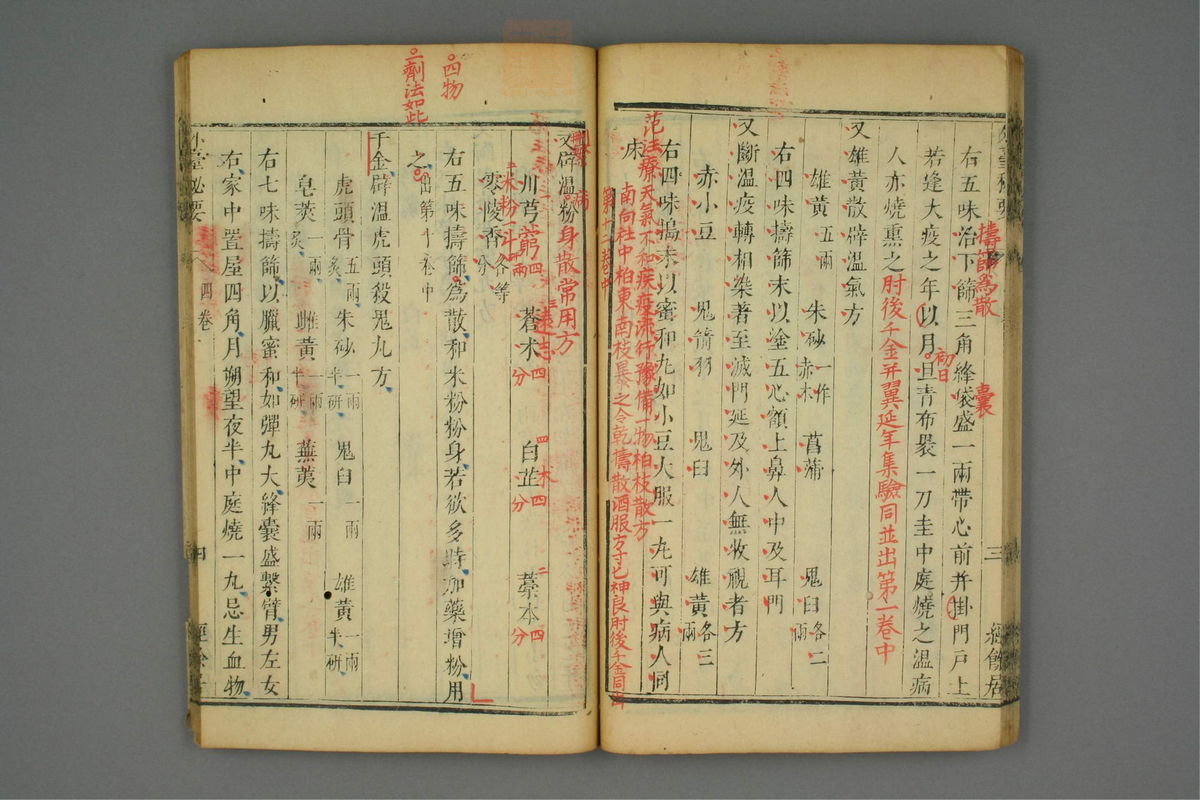 右五味治下篩三角絳袋盛一兩帶心前并掛門戶上
擣篩為散
囊
若逢大疫之年以月旦青布裹一刀圭中庭燒之溫病
初
人亦燒熏之
肘後千金并翼延年集驗同並出第一卷中
又雄黃散辟溫氣方
雄黃五兩 朱砂一作赤木 菖蒲 鬼臼各二兩
右四味擣篩末以塗五心額上鼻人中及耳門
又斷溫疫轉相染著至滅門延及外人無收視者方
赤小豆 鬼箭羽 鬼臼 雄黃各三兩
右四味擣末以蜜和丸如小豆大服一丸可與病人同
床
范汪療天氣不和疾疫流行豫備一物柏枝散方
南向社中柏東南枝暴之令乾擣散酒服方寸匕神良肘後千金同出
又辟溫粉身散常用方
川芎 蒼术 白芷 藁本 零陵香各等分
右五味擣篩為散和米粉粉身若欲多時加藥增粉用
之出第十卷中
四物
二劑法如此
千金辟溫虎頭殺鬼丸方
虎頭骨五兩炙 朱砂一兩半研 鬼臼一兩 雄黃一兩半研
皂莢一兩炙 雌黃一兩半研 蕪荑一兩
右七味擣篩以臘蜜和如彈丸大絳囊盛繫臂男左女
右家中置屋四角月朔望夜半中庭燒一丸忌生血物
外臺秘要 四卷 四